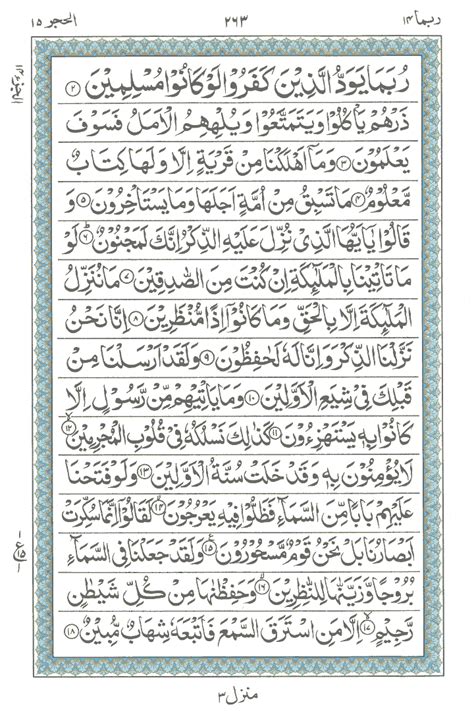 ربما ١٤
٢٦٣
الحجر ١٥
رُبَمَا يَوَدُّ الَّذِيْنَ كَفَرُوْا لَوْ كَانُوْا مُسْلِمِيْنَ ②
ذَرْهُمْ يَاْكُلُوْا وَيَتَمَتَّعُوْا وَيُلْهِهِمُ الْاَمَلُ فَسَوْفَ
يَعْلَمُوْنَ ③ وَمَآ اَهْلَكْنَا مِنْ قَرْيَةٍ اِلَّا وَلَهَا كِتَابٌ
مَّعْلُوْمٌ ④ مَا تَسْبِقُ مِنْ اُمَّةٍ اَجَلَهَا وَمَا يَسْتَاْخِرُوْنَ ⑤ وَ
قَالُوْا يٰٓاَيُّهَا الَّذِيْ نُزِّلَ عَلَيْهِ الذِّكْرُ اِنَّكَ لَمَجْنُوْنٌ ⑥ لَوْ
مَا تَاْتِيْنَا بِالْمَلٰٓئِكَةِ اِنْ كُنْتَ مِنَ الصّٰدِقِيْنَ ⑦ مَا نُنَزِّلُ
الْمَلٰٓئِكَةَ اِلَّا بِالْحَقِّ وَمَا كَانُوْٓا اِذًا مُّنْظَرِيْنَ ⑧ اِنَّا نَحْنُ
نَزَّلْنَا الذِّكْرَ وَاِنَّا لَهٗ لَحٰفِظُوْنَ ⑨ وَلَقَدْ اَرْسَلْنَا مِنْ
قَبْلِكَ فِيْ شِيَعِ الْاَوَّلِيْنَ ⑩ وَمَا يَاْتِيْهِمْ مِّنْ رَّسُوْلٍ اِلَّا
كَانُوْا بِهٖ يَسْتَهْزِءُوْنَ ⑪ كَذٰلِكَ نَسْلُكُهٗ فِيْ قُلُوْبِ الْمُجْرِمِيْنَ ⑫
لَا يُؤْمِنُوْنَ بِهٖ وَقَدْ خَلَتْ سُنَّةُ الْاَوَّلِيْنَ ⑬ وَلَوْ فَتَحْنَا
عَلَيْهِمْ بَابًا مِّنَ السَّمَآءِ فَظَلُّوْا فِيْهِ يَعْرُجُوْنَ ⑭ لَقَالُوْٓا اِنَّمَا سُكِّرَتْ
اَبْصَارُنَا بَلْ نَحْنُ قَوْمٌ مَّسْحُوْرُوْنَ ⑮ وَلَقَدْ جَعَلْنَا فِي السَّمَآءِ
بُرُوْجًا وَّزَيَّنّٰهَا لِلنّٰظِرِيْنَ ⑯ وَحَفِظْنٰهَا مِنْ كُلِّ شَيْطٰنٍ
رَّجِيْمٍ ⑰ اِلَّا مَنِ اسْتَرَقَ السَّمْعَ فَاَتْبَعَهٗ شِهَابٌ مُّبِيْنٌ ⑱
منزل ٣